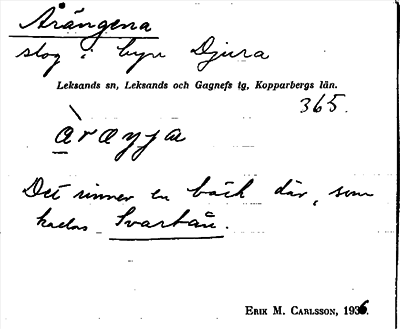 Årängena
slog i byn Djura
Leksands sn, Leksands och Gagnefs tg, Kopparbergs län.
365.
Det rinner en bäck där, som
kallas Svartån.
ERIK M. CARLSSON, 1936.